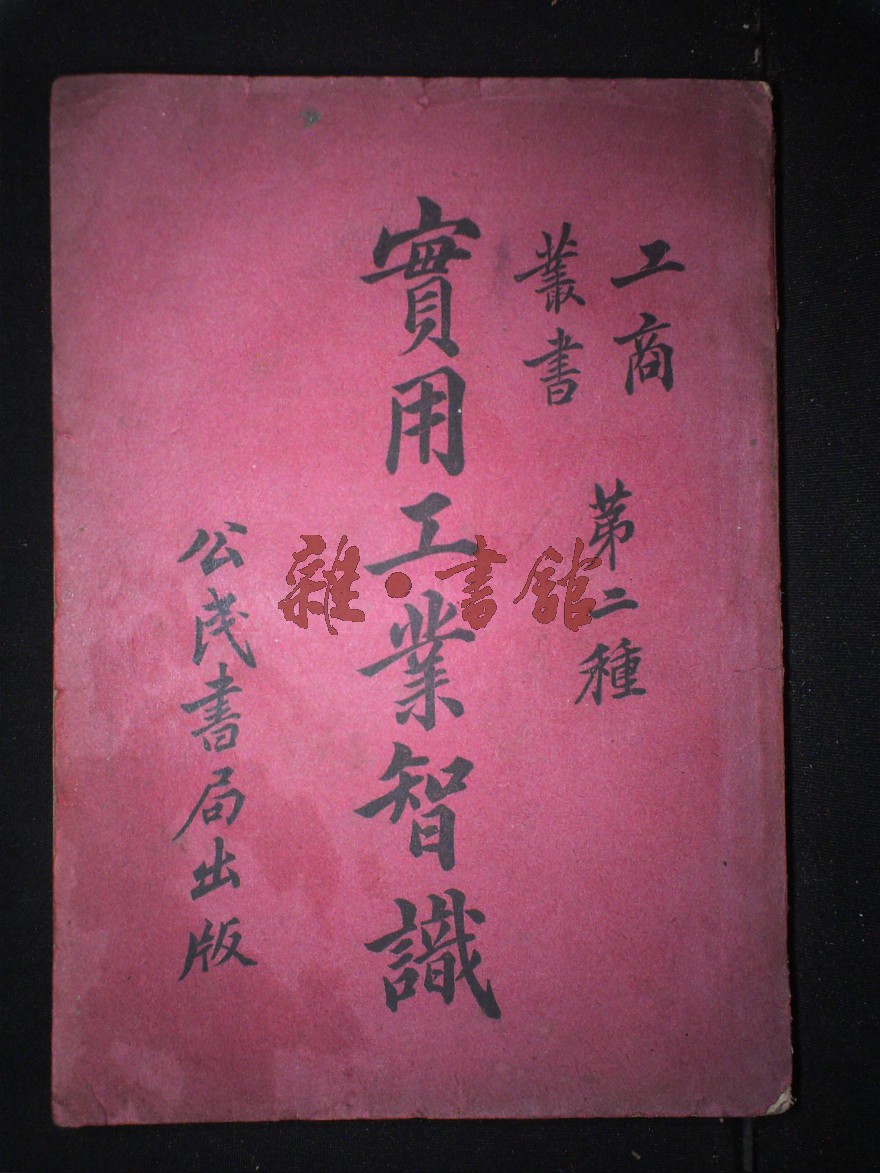 工商
叢書
第二種
實用工業智識
公民書局出版
雜·書館